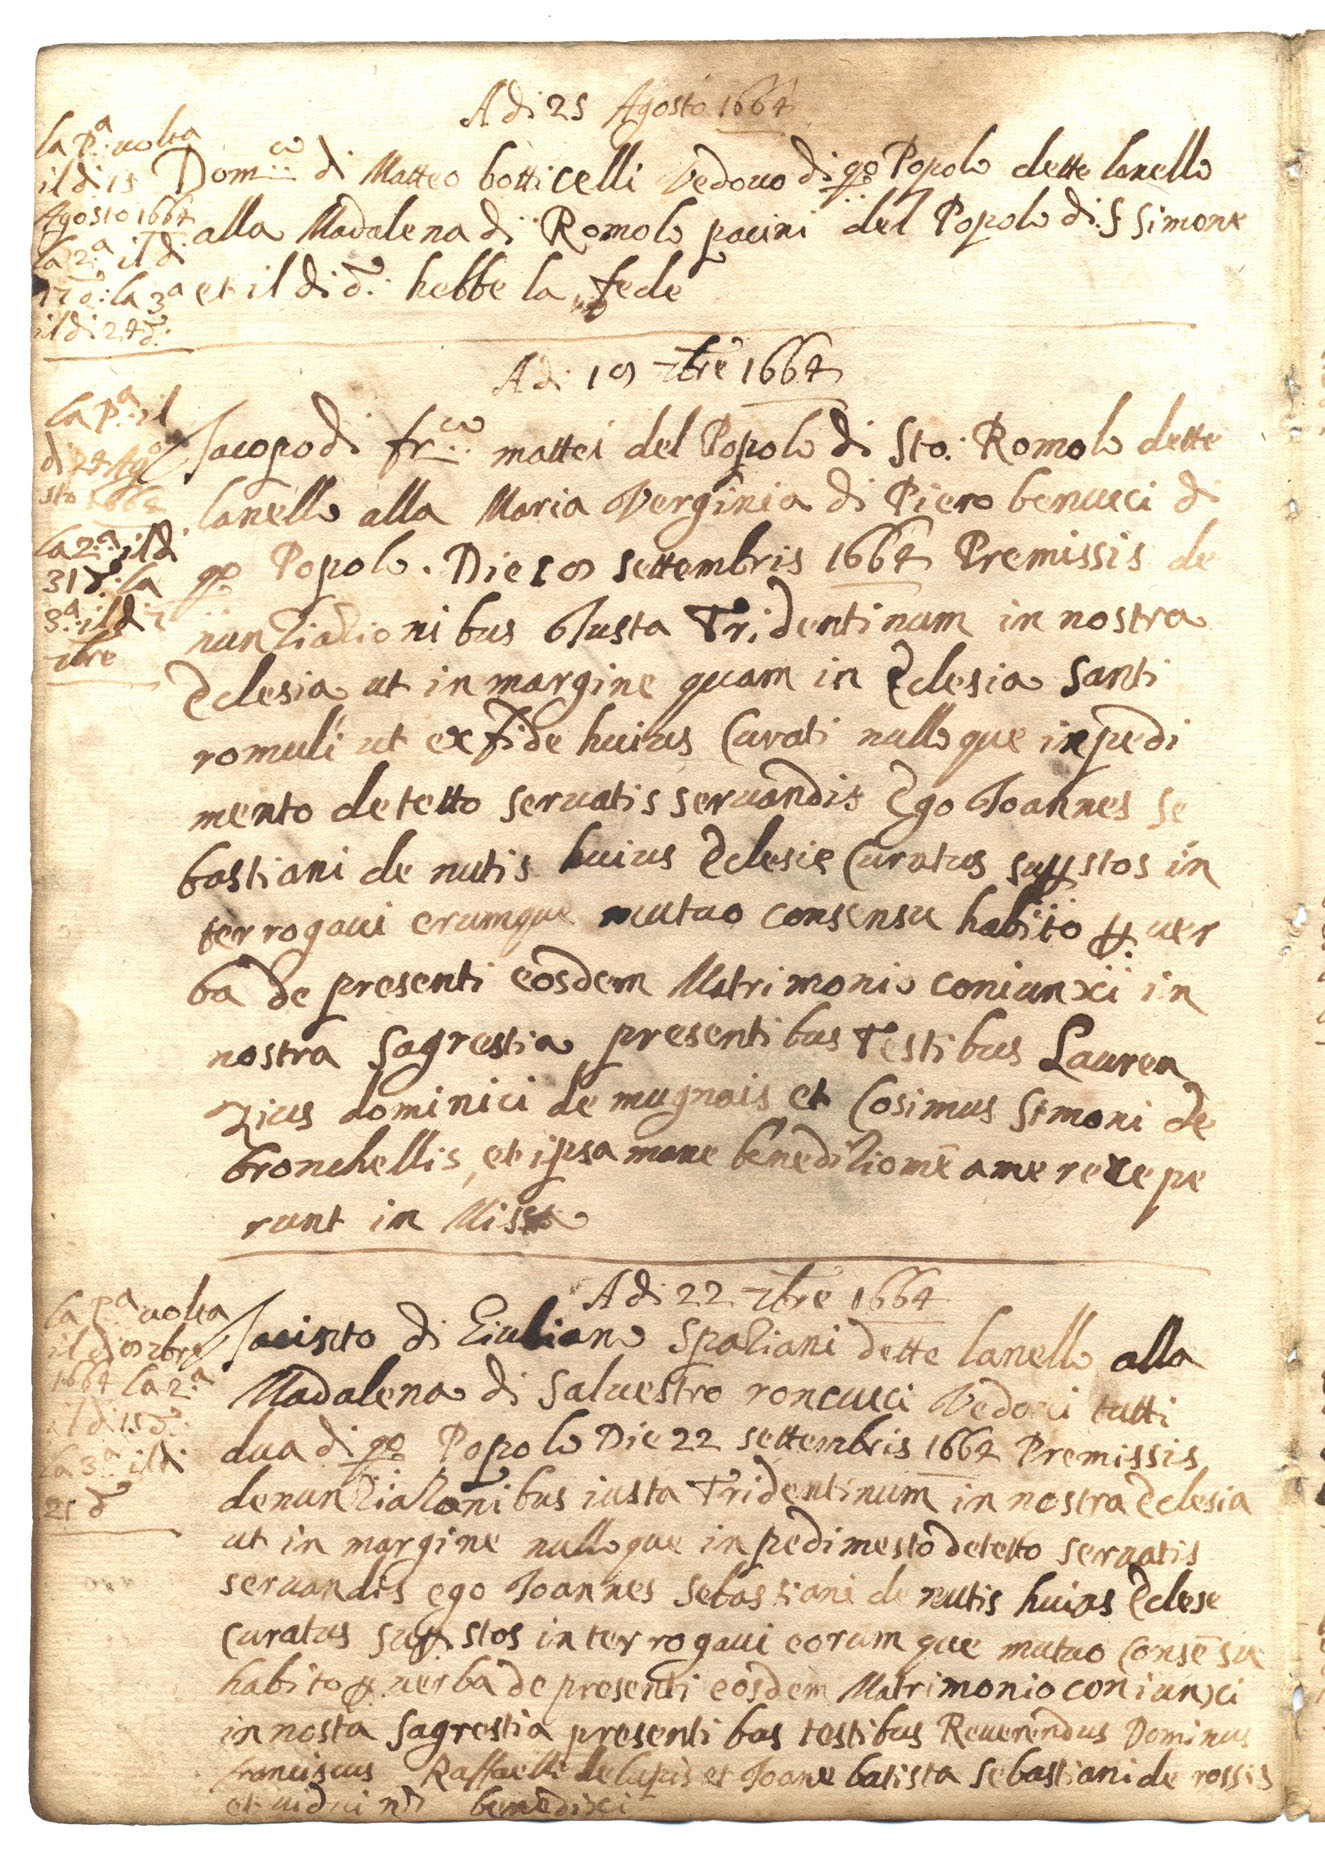 A di 25 Agosto 1664
la p.a uolta
il di 15
Agosto 1664
la 2.a il di
17 d.: la 3a
il di 24 d.
Dom.co di Matteo botticelli Vedouo di q.o Popolo dette lanello
alla Madalena di Romolo pacini del Popolo di S Simone
et il di d.: hebbe la fede
A di 10 7bre 1664
la p.a il
di 24 Ago
sto 1664
la 2.a il di
31 d: la
3.a il di 7
7bre
Jacopo di fr.co mattei del Popolo di Sto. Romolo dette
lanello alla Maria Verginia di Piero benucci di
q.o Popolo. Die 10 settembris 1664 Premissis de
nunziationibus Justa Tridentinum in nostra
Eclesia ut in margine quam in Eclesia Santi
romuli ut ex fide huius Curati nulloque inpedi
mento detetto seruatis seruandis Ego Joannes se
bastiani de nutis huius Eclesie Curatus supstos in
terrogaui erumque mutuo consensu habito p. uer
ba de presenti eosdem Matrimonio coniunxi in
nostra Sagrestia presentibus Testibus Lauren
zius dominici de mugnais et Cosimus Simoni de
bronchellis, et ipsa mane benedizionẽ a me recepe
runt in Missa
A di 22 7bre 1664
la p.a uolta
il di 8 7bre
1664 la 2.a
il di 15 d.
la 3.a il di
21 d
Jacinto di Giuliano Spaliani dette lanello alla
Madalena di Saluestro roncucci Vedoui tutti
dua di q.o Popolo Die 22 settembris 1664 Premissis
denunziazionibus iusta Tridentinum in nostra Eclesia
ut in margine nulloque inpedimesto detetto seruatis
seruandis ego Joannes Sebastiani de nutis huius Eclese
Curatus supstos interrogaui eorumque mutuo Consẽsu
habito p. uerba de presenti eosdem Matrimonio coniunxi
in nosta Sagrestia presentibus testibus Reuerendus Dominus
franciscus Raffaelli de lupis et Joane batista Sebastiani de rossis
et uidui nõ benedixi